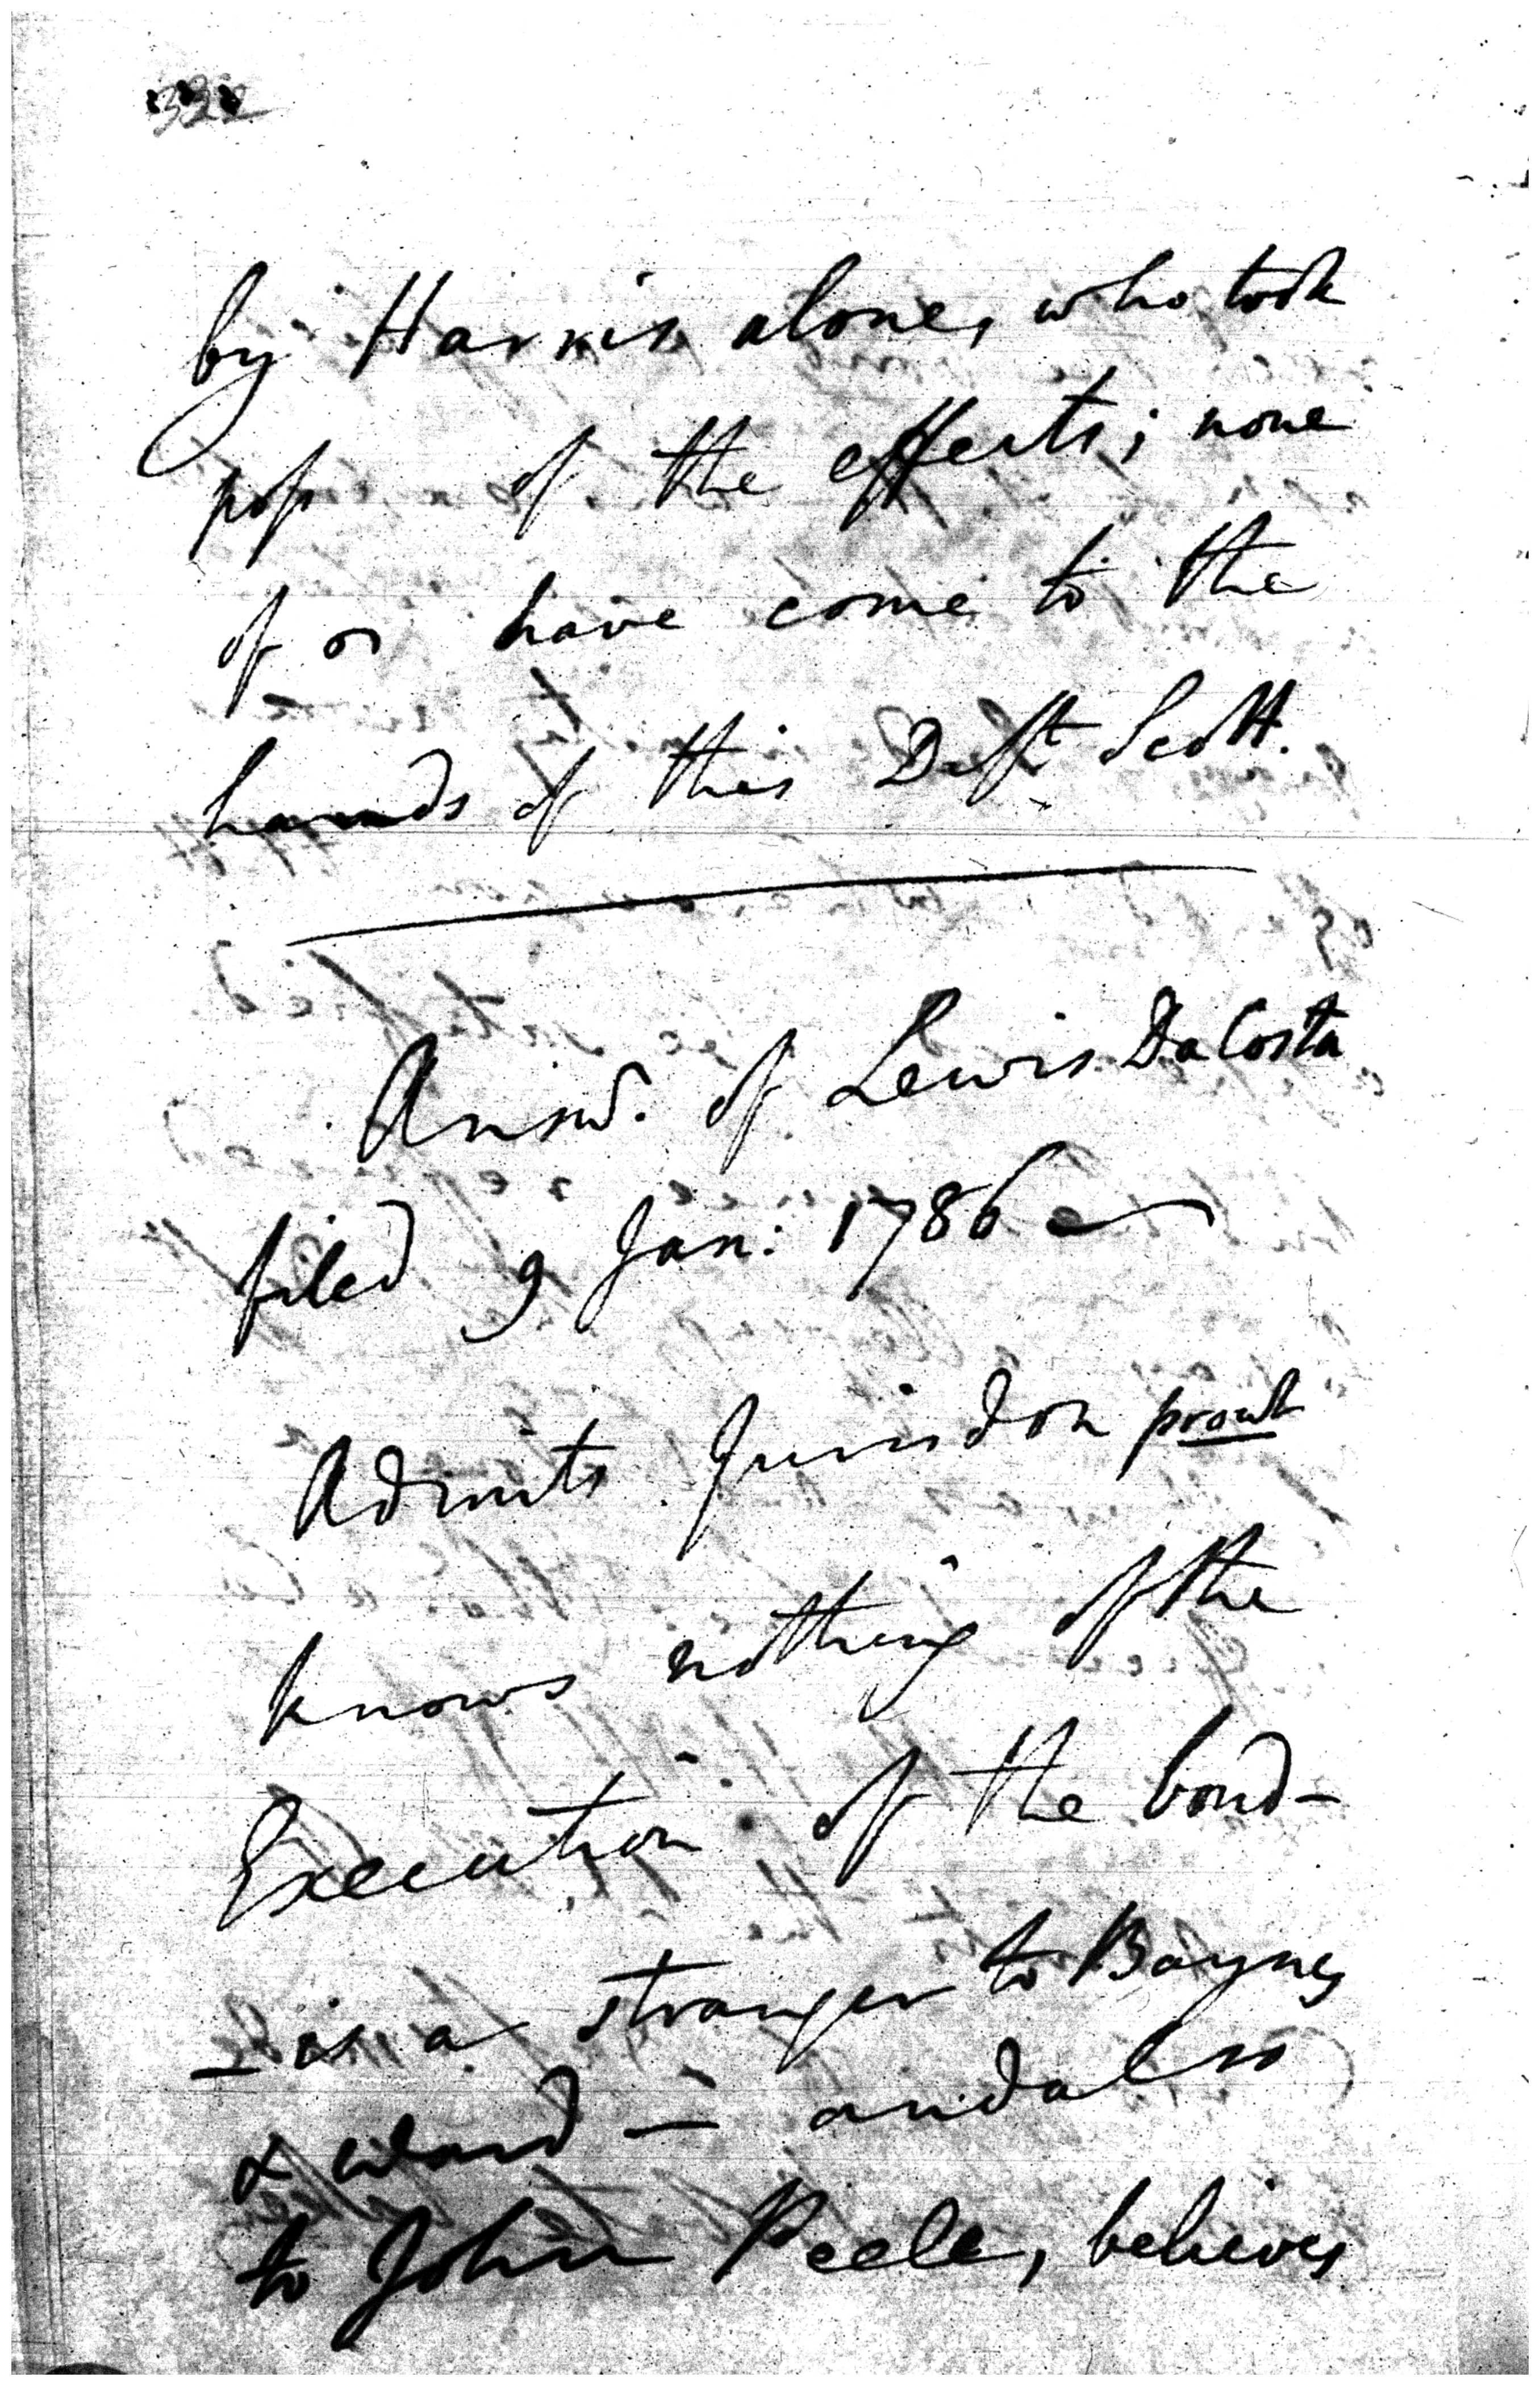 322
by Harris alone, who took
poss of the effects; none
of or have come to the
hands of this Deft Scott.
Answd. of Lewis Da Costa
filed 9 Jan: 1786
Admits Jurisdon prout
knows nothing of the
Execution of the bond—
— is a stranger to Baynes
& Ward — and also
to John Peele, believes